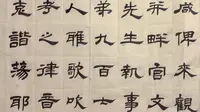 咸俾來觀
并畔宮文
先生執事
弟九百七
人雅歌吹
考之律音
克諧蕩耶